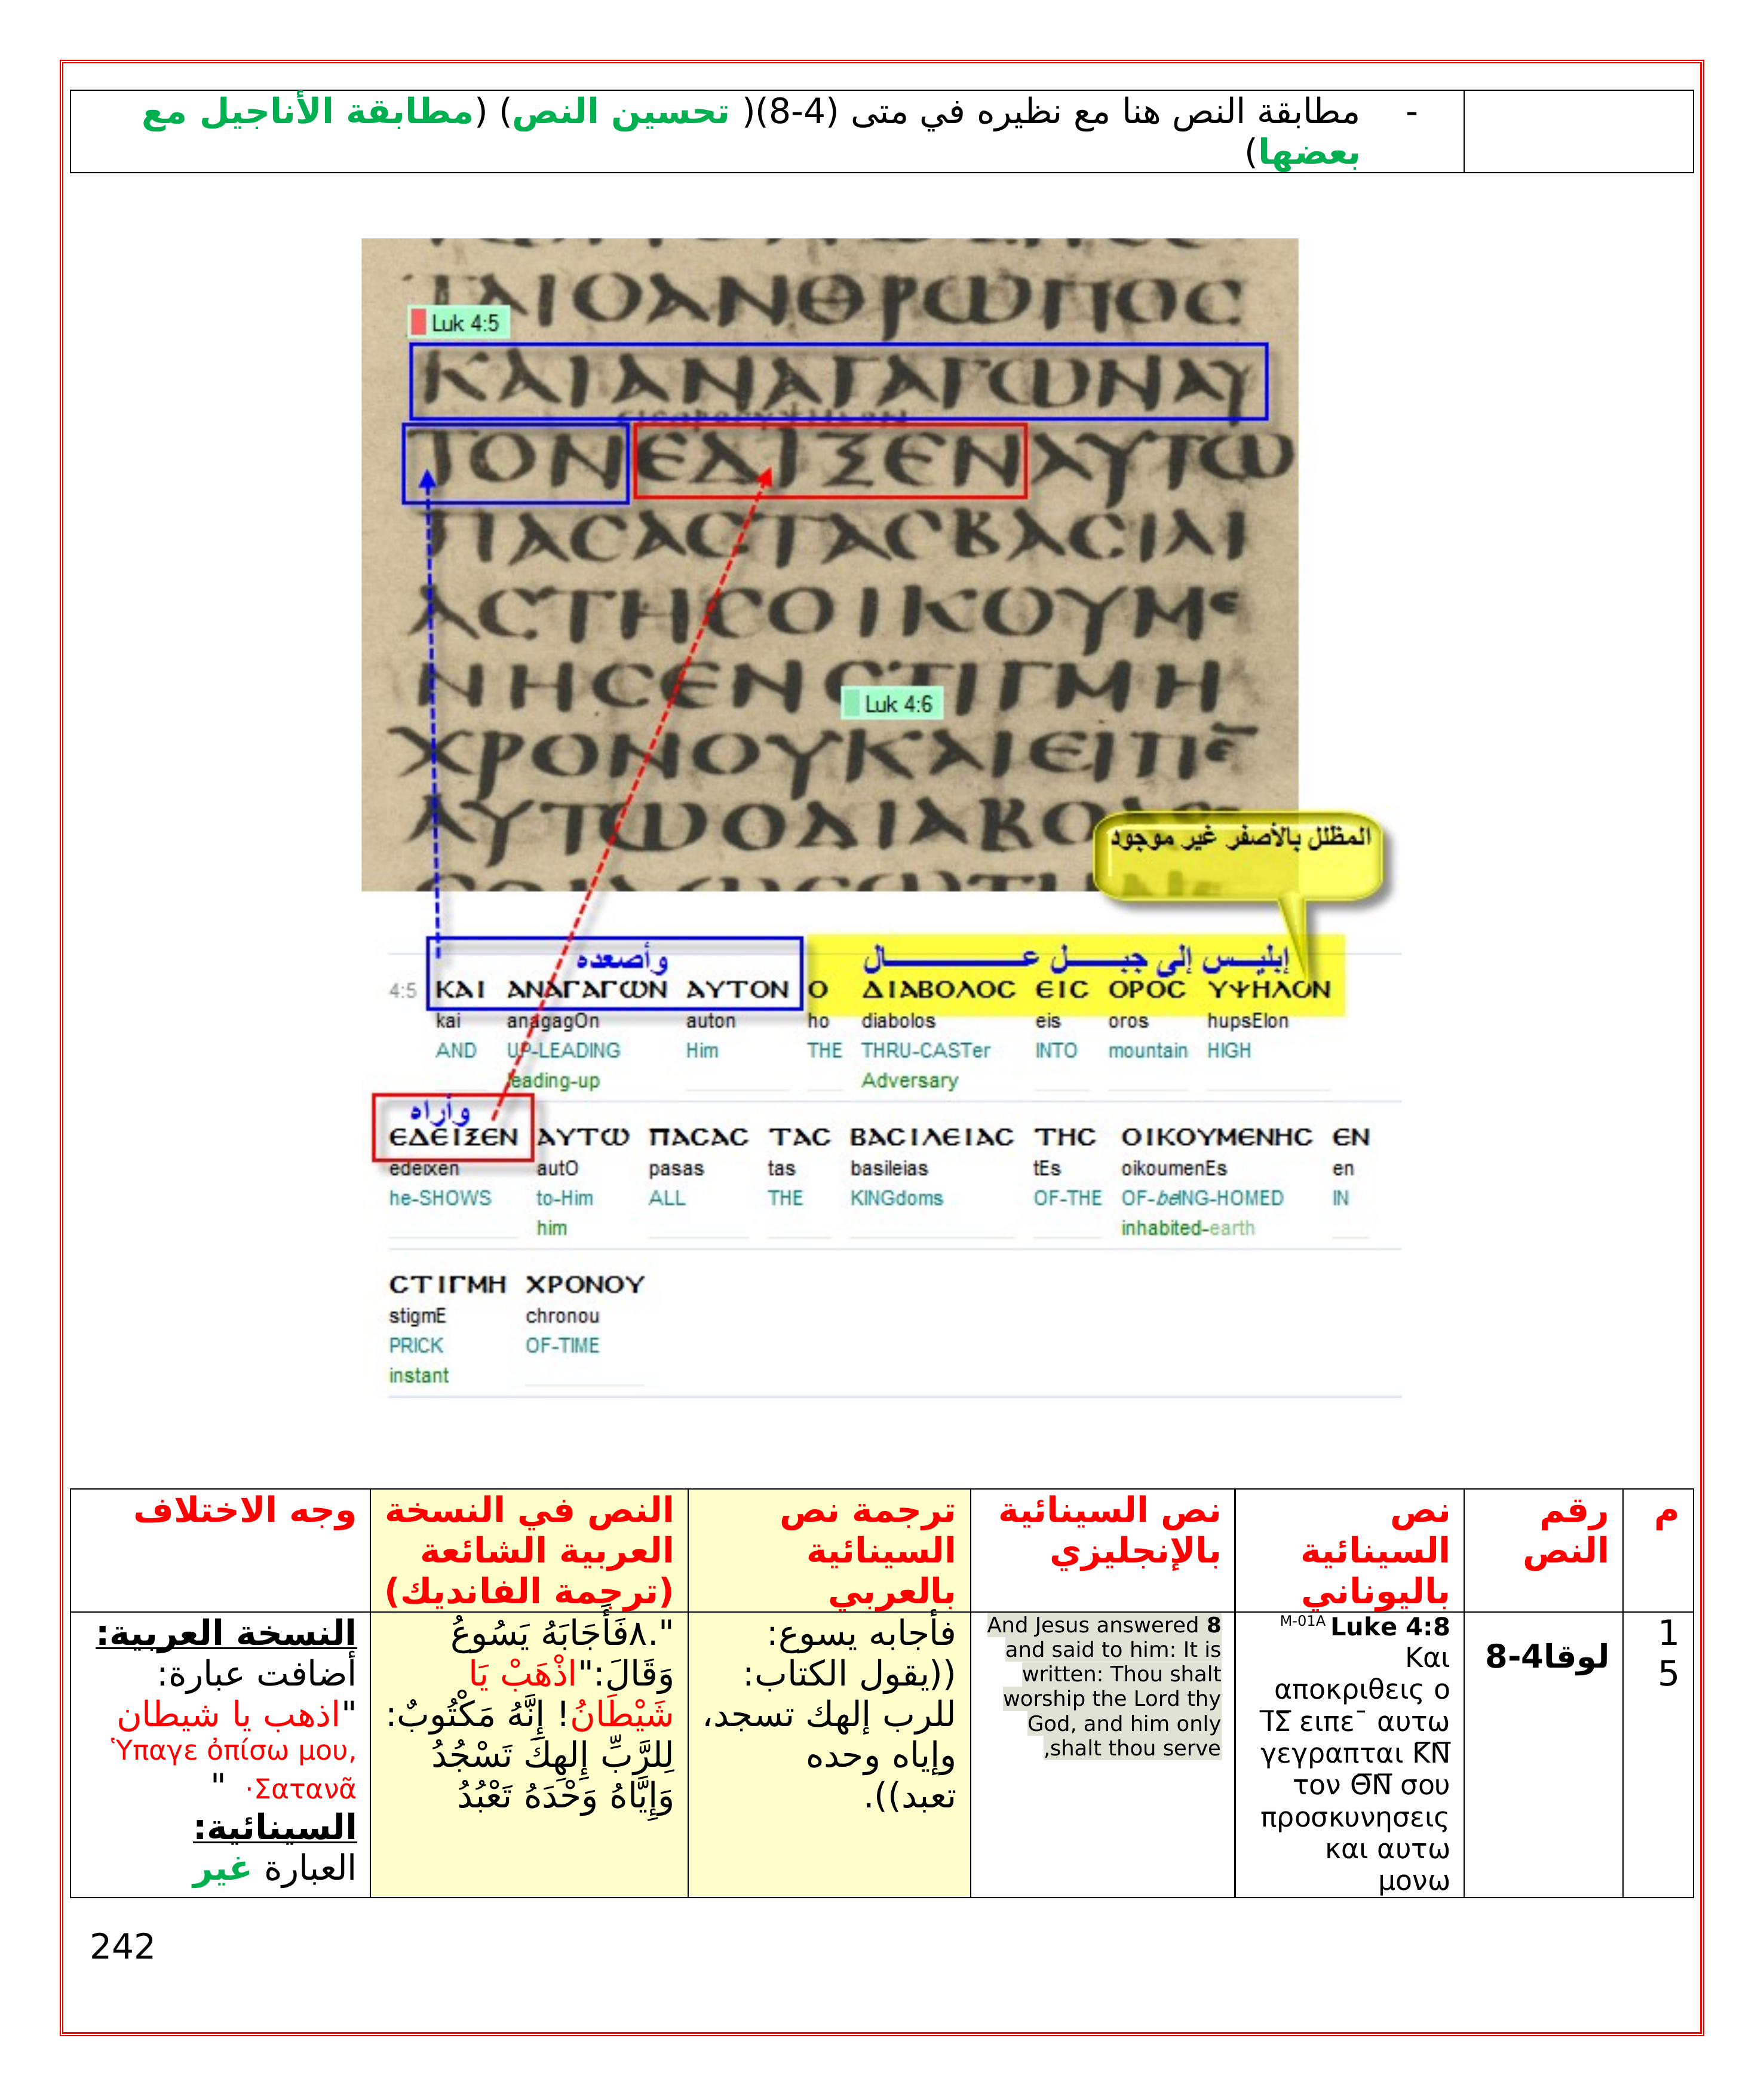 - مطابقة النص هنا مع نظيره في متى (4-8)( تحسين النص) (مطابقة الأناجيل مع
بعضها)
ΤΑΙΟΑΝΘΡΩΠΟΣ
Luk 4:5
ΚΑΙΑΝΑΓΑΓΩΝΑΥ
ΤΟΝΕΔΙΞΕΝΑΥΤΩ
ΠΑϹΑϹΤΑϹΒΑϹΙΛΙ
ΑϹΤΗϹΟΙΚΟΥΜΕ
ΝΗϹΕΝϹΤΙΓΜΗ
Luk 4:6
ΧΡΟΝΟΥΚΑΙΕΙΠΕ̅
ΑΥΤΩΟΔΙΑΒΟΛΟ
المظلل بالأصفر غير موجود
وأصعده إبليس إلى جبل عال
4:5 ΚΑΙ ΑΝΑΓΑΓΩΝ ΑΥΤΟΝ Ο ΔΙΑΒΟΛΟϹ ΕΙϹ ΟΡΟϹ ΥΨΗΛΟΝ
kai anagagOn auton ho diabolos eis oros hupsElon
AND UP-LEADING Him THE THRU-CASTer INTO mountain HIGH
leading-up Adversary
وأراه
ΕΔΕΙΞΕΝ ΑΥΤΩ ΠΑϹΑϹ ΤΑϹ ΒΑϹΙΛΕΙΑϹ ΤΗϹ ΟΙΚΟΥΜΕΝΗϹ ΕΝ
edeixen autO pasas tas basileias tEs oikoumenEs en
he-SHOWS to-Him ALL THE KINGdoms OF-THE OF-beING-HOMED IN
him inhabited-earth
ϹΤΙΓΜΗ ΧΡΟΝΟΥ
stigmE chronou
PRICK OF-TIME
instant
م
رقم
النص
نص
السينائية
باليوناني
نص السينائية
بالإنجليزي
ترجمة نص
السينائية
بالعربي
النص في النسخة
العربية الشائعة
(ترجمة الفانديك)
وجه الاختلاف
1
5
لوقا4-8
M-01A Luke 4:8
Και
αποκριθεις ο
Ι̅Σ̅ ειπε¯ αυτω
γεγραπται Κ̅Ν̅
τον Θ̅Ν̅ σου
προσκυνησεις
και αυτω
μονω
And Jesus answered 8
and said to him: It is
written: Thou shalt
worship the Lord thy
God, and him only
,shalt thou serve
فأجابه يسوع:
((يقول الكتاب:
للرب إلهك تسجد،
وإياه وحده
تعبد)).
"٨.فَأَجَابَهُ يَسُوعُ
وَقَالَ:"اذْهَبْ يَا
شَيْطَانُ! إِنَّهُ مَكْتُوبٌ:
لِلرَّبِّ إِلهِكَ تَسْجُدُ
وَإِيَّاهُ وَحْدَهُ تَعْبُدُ
النسخة العربية:
أضافت عبارة:
"اذهب يا شيطان
Ὕπαγε ὀπίσω μου,
Σατανᾶ· "
السينائية:
العبارة غير
242